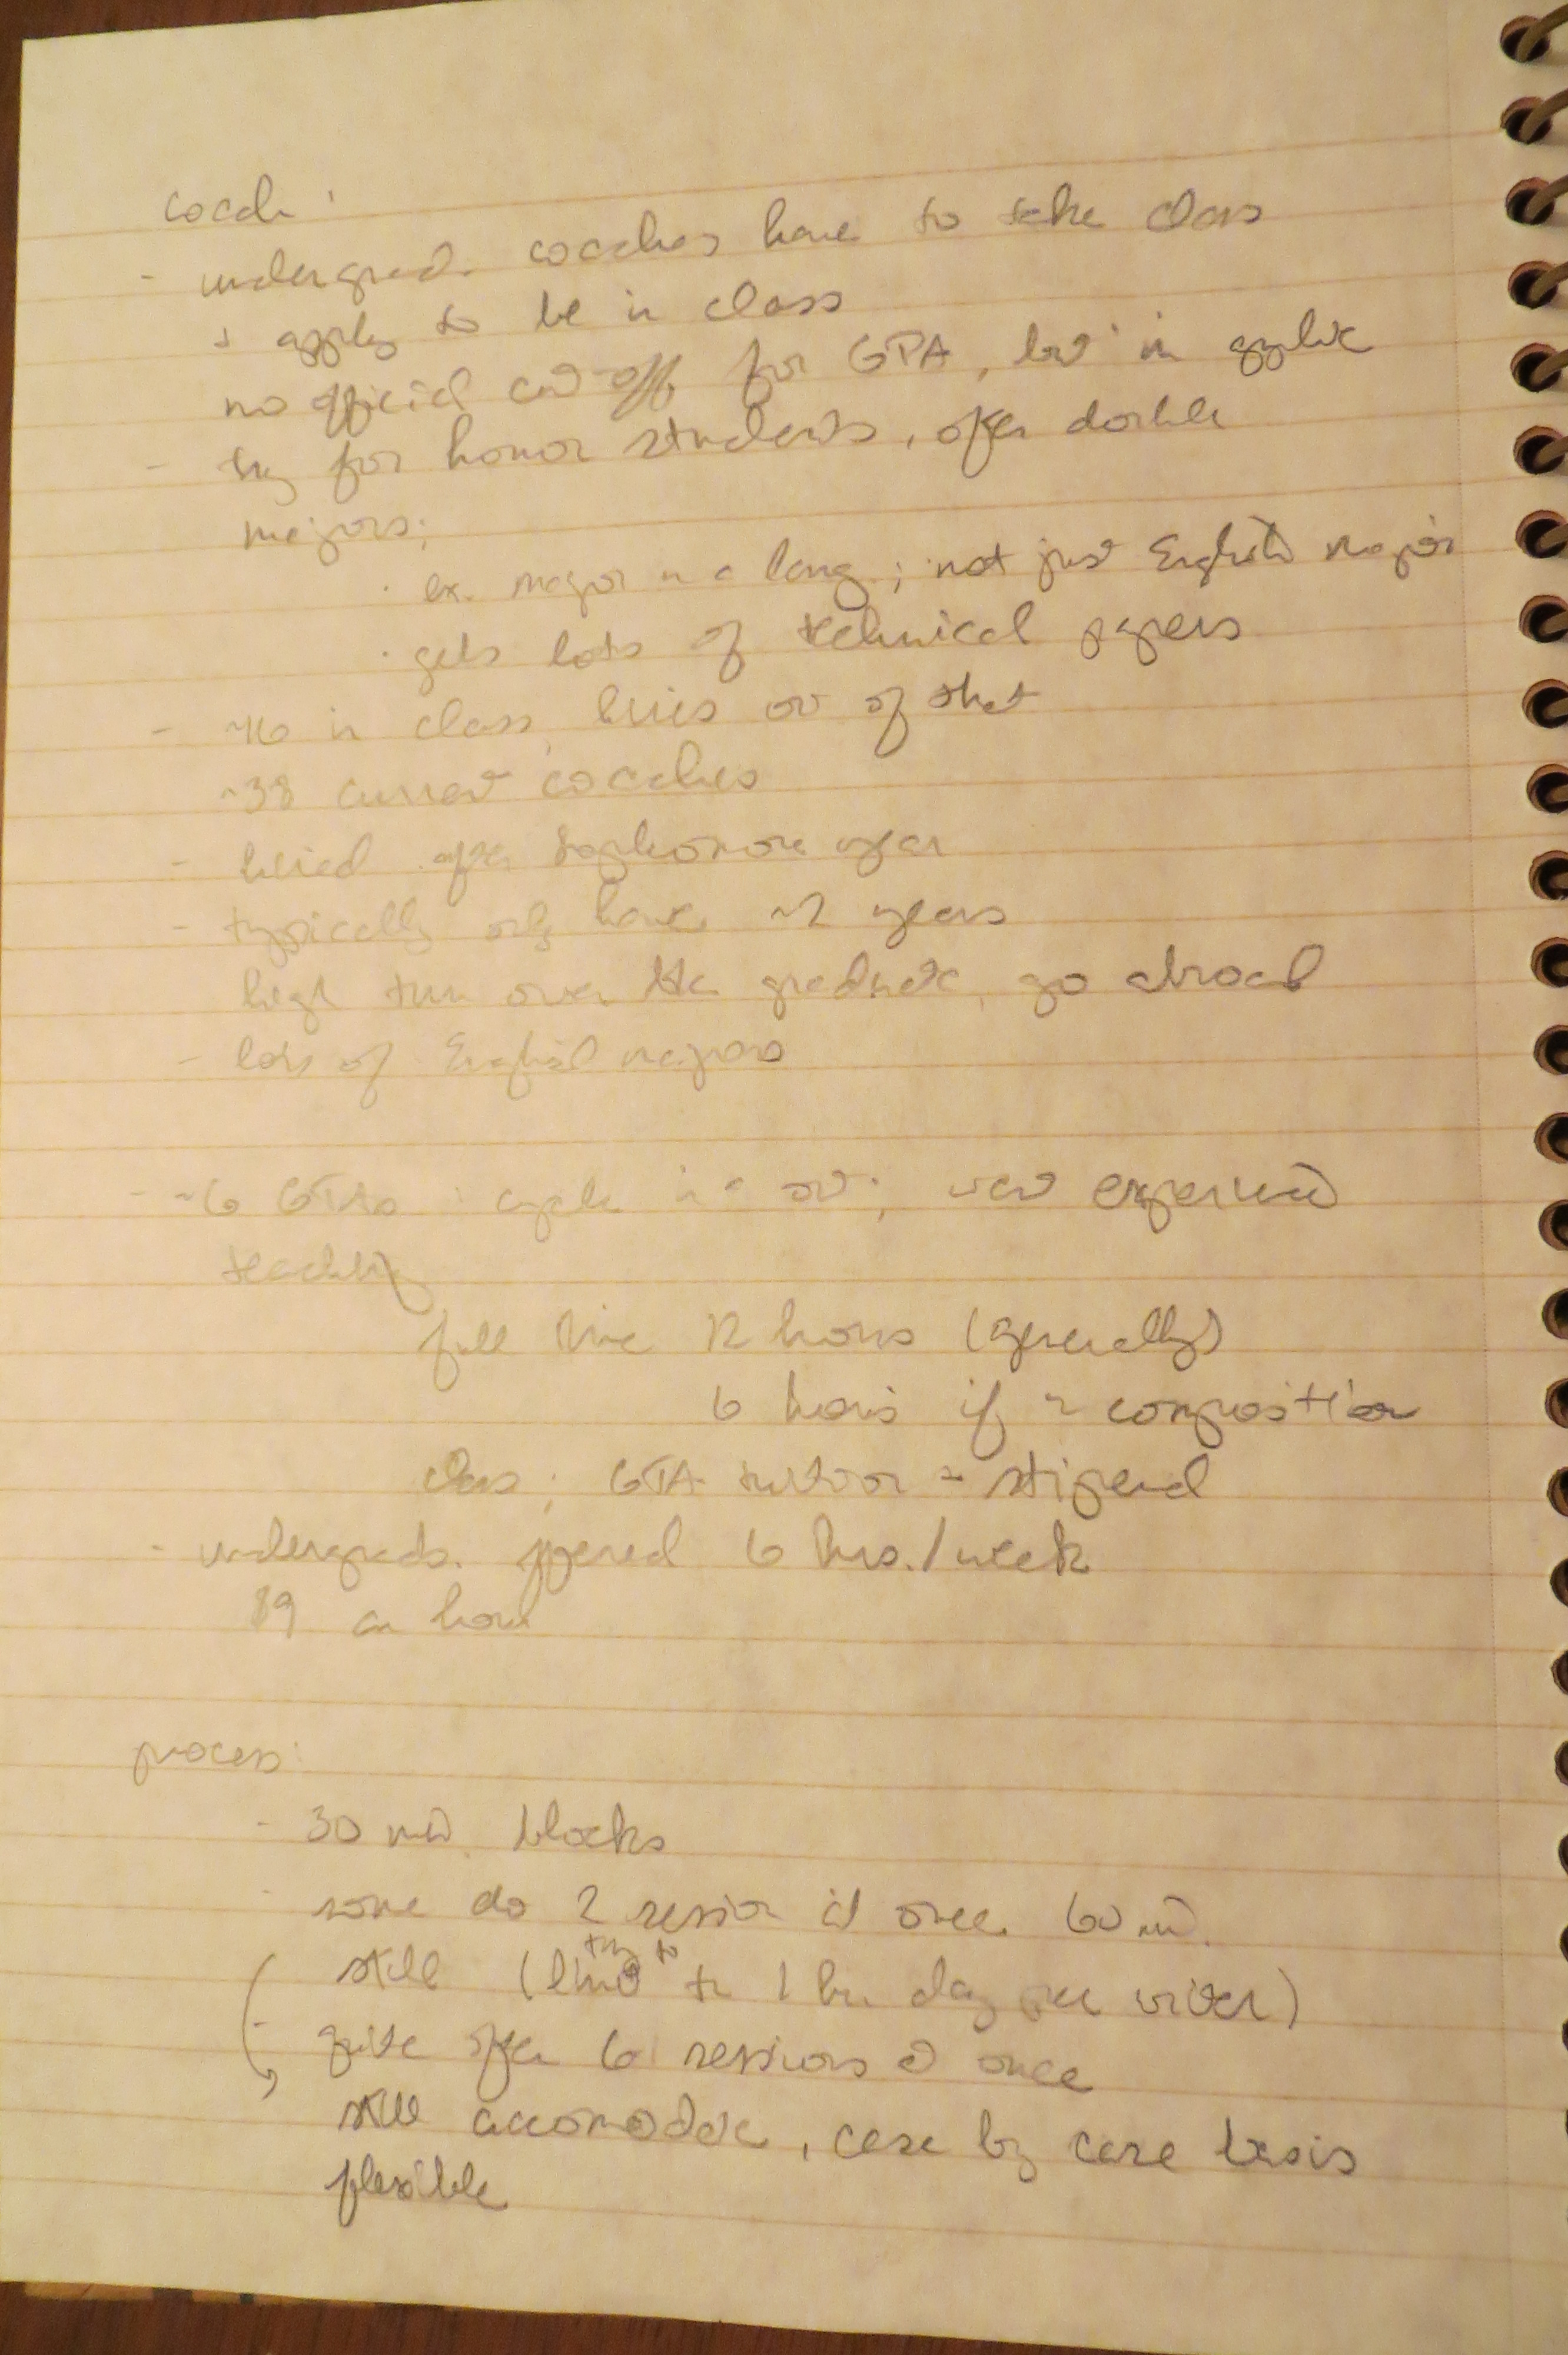 coach:
- undergrad. coaches have to take class
+ apply to be in class
no official cut-off for GPA, but in applic
- try for honor students, often double
majors;
· ex. major in a lang; not just English major
· gets lots of technical papers
- ~16 in class, hires out of that
~38 current coaches
- hired after sophomore year
- typically only have ~2 years
high turn over like graduate, go abroad
- lots of English majors
- ~6 GTAs cycle in + out; want experienced
teaching
full time 12 hours (generally)
6 hours if composition
class; GTA tuition + stipend
- undergrads. spend 6 hrs./week
$9 an hour
process:
- 30 min. blocks
- some do 2 session at once 60 min.
still (limit try to 1 hr. day per writer)
- quite often 6 sessions @ once
still accomodate, case by case basis
flexible